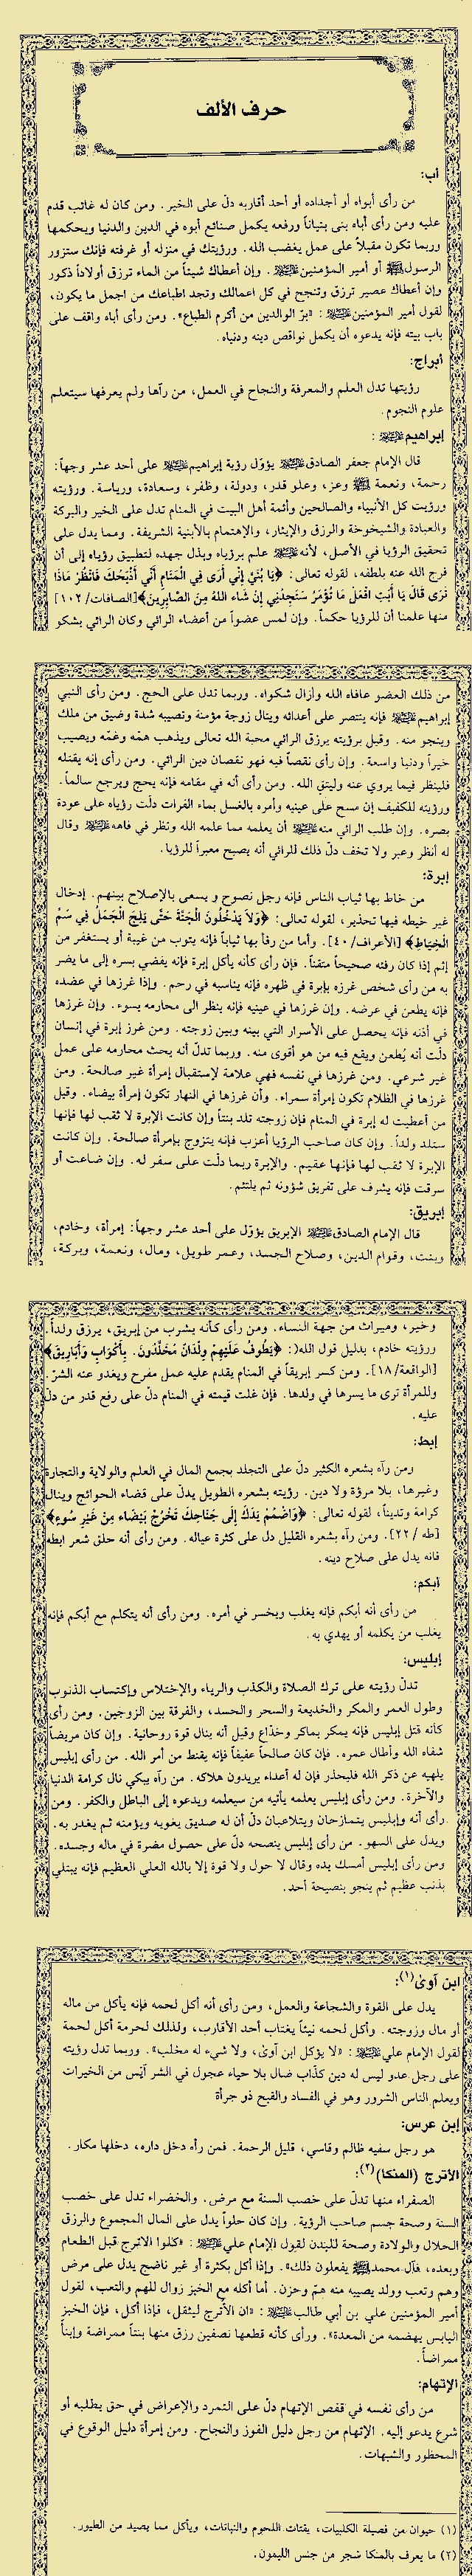 حرف الألف
أب:
من رأى أبواه أو أجداده أو أحد أقاربه دلّ على الخير. ومن كان له غائب قدم
عليه ومن رأى أباه بنى بنياناً ورفعه يكمل صنائع أبوه في الدين والدنيا ويحكمها
وربما تكون مقبلاً على عمل يغضب الله. ورؤيتك في منزله أو غرفته فإنك ستزور
الرسول ﷺ أو أمير المؤمنين. وإن أعطاك شيئاً من الماء ترزق أولاداً ذكور
وإن أعطاك عصير ترزق وتنجح في كل اعمالك وتجد اطباعك من اجمل ما يكون،
لقول أمير المؤمنين: «برّ الوالدين من أكرم الطباع». ومن رأى أباه واقف على
باب بيته فإنه يدعوه أن يكمل نواقص دينه ودنياه.
أبراج:
رؤيتها تدل العلم والمعرفة والنجاح في العمل، من رآها ولم يعرفها سيتعلم
علوم النجوم.
إبراهيم:
قال الإمام جعفر الصادق يؤوّل رؤية إبراهيم على أحد عشر وجهاً:
رحمة، ونعمة وعز، وعلو قدر، ودولة، وظفر، وسعادة، ورياسة. ورؤيته
ورؤيت كل الأنبياء والصالحين وأئمة أهل البيت في المنام تدل على الخير والبركة
والعبادة والشيخوخة والرزق والإيثار، والإهتمام بالأبنية الشريفة. ومما يدل على
تحقيق الرؤيا في الأصل، لأنه علم برؤياه وبذل جهده لتطبيق رؤياه إلى أن
فرج الله عنه بلطفه، لقوله تعالى: ﴿يَا بُنَيَّ إِنِّي أَرَى فِي الْمَنَامِ أَنِّي أَذْبَحُكَ فَانْظُرْ مَاذَا
تَرَى قَالَ يَا أَبَتِ افْعَلْ مَا تُؤْمَرُ سَتَجِدُنِي إِنْ شَاءَ اللهُ مِنَ الصَّابِرِينَ﴾[الصافات/١٠٢]
منها علمنا أن للرؤيا حكماً. وإن لمس عضواً من أعضاء الرائي وكان الرائي يشكو
من ذلك العضو عافاه الله وأزال شكواه. وربما تدل على الحج. ومن رأى النبي
إبراهيم فإنه ينتصر على أعدائه وينال زوجة مؤمنة وتصيبه شدة وضيق من ملك
وينجو منه. وقيل برؤيته يرزق الرائي محبة الله تعالى ويذهب همّه وغمّه ويصيب
خيراً ودنيا واسعة. وإن رأى نقصاً فيه فهو نقصان دين الرائي. ومن رأى إنه يقتله
فلينظر فيما يروي عنه وليتق الله. ومن رأى أنه في مقامه فإنه يحج ويرجع سالماً.
ورؤيته للكفيف إن مسح على عينيه وأمره بالغسل بماء الفرات دلّت رؤياه على عودة
بصره. وإن طلب الرائي منه أن يعلمه مما علمه الله ونظر في فاهه وقال
له أنظر وعبر ولا تخف دلّ ذلك للرائي أنه يصبح معبراً للرؤيا.
إبرة:
من خاط بها ثياب الناس فإنه رجل نصوح و يسعى بالإصلاح بينهم. إدخال
غير خيطه فيها تحذير، لقوله تعالى: ﴿وَلاَ يَدْخُلُونَ الْجَنَّةَ حَتَّى يَلِجَ الْجَمَلُ فِي سَمِّ
الْخِيَاطِ﴾ [الأعراف/٤٠]. وأما من رفأ بها ثياباً فإنه يتوب من غيبة أو يستغفر من
إثم إذا كان رفئه صحيحاً متقناً. فإن رأى كأنه يأكل إبرة فإنه يفضي بسره إلى ما يضر
به من رأى شخص غرزه بإبرة في ظهره فإنه يناسبه في رحم. وإذا غرزها في عضده
فإنه يطعن في عرضه. وإن غرزها في عينيه فإنه ينظر الى محارمه بسوء. وإن غرزها
في أذنه فإنه يحصل على الأسرار التي بينه وبين زوجته. ومن غرز إبرة في إنسان
دلّت أنه يُطعن ويقع فيه من هو أقوى منه. وربما تدلّ أنه يحث محارمه على عمل
غير شرعي. ومن غرزها في نفسه فهي علامة لإستقبال إمرأة غير صالحة. ومن
غرزها في الظلام تكون إمرأة سمراء. وأن غرزها في النهار تكون إمرأة بيضاء. وقيل
من أعطيت له إبرة في المنام فإن زوجته تلد بنتاً وإن كانت الإبرة لا ثقب لها فإنها
ستلد ولداً. وإن كان صاحب الرؤيا أعزب فإنه يتزوج بإمرأة صالحة. وإن كانت
الإبرة لا ثقب لها فإنها عقيم. والإبرة ربما دلّت على سفر له. وإن ضاعت أو
سرقت فإنه يشرف على تفريق شؤونه ثم يلتئم.
إبريق:
قال الإمام الصادق الإبريق يؤوّل على أحد عشر وجهاً: إمرأة، وخادم،
وبنت، وقوام الدين، وصلاح الجسد، وعمر طويل، ومال، ونعمة، وبركة،
وخير، وميراث من جهة النساء. ومن رأى كأنه يشرب من إبريق، يرزق ولداً.
ورؤيته خادم، بدليل قول الله(: ﴿يَطُوفُ عَلَيْهِمْ وِلْدَانٌ مُخَلَّدُونَ. بِأَكْوَابٍ وَأَبَارِيقَ﴾
[الواقعة/١٨]. ومن كسر إبريقاً في المنام يقدم عليه عمل مفرح ويغدو عنه الشرّ.
وللمرأة ترى ما يسرها في ولدها. فإن غلت قيمته في المنام دلّ على رفع قدر من دلّ
عليه.
إبط:
ومن رآه بشعره الكثير دلّ على التجلد بجمع المال في العلم والولاية والتجارة
وغيرها، بلا مروّة ولا دين. رؤيته بشعره الطويل يدلّ على قضاء الحوائج وينال
كرامة وتديناً، لقوله تعالى: ﴿وَاضْمُمْ يَدَكَ إِلَى جَنَاحِكَ تَخْرُجْ بَيْضَاء مِنْ غَيْرِ سُوءٍ﴾
[طه /٢٢]. ومن رآه بشعره القليل دل على كثرة عياله. ومن رأى أنه حلق شعر ابطه
فانه يدل على صلاح دينه.
أبكم:
من رأى أنه أبكم فإنه يغلب ويخسر في أمره. ومن رأى أنه يتكلم مع أبكم فإنه
يغلب من يكلمه أو يهدي به.
إبليس:
تدلّ رؤيته على ترك الصلاة والكذب والرياء والإختلاس وإكتساب الذنوب
وطول العمر والمكر والخديعة والسحر والحسد، والفرقة بين الزوجين. ومن رأى
كأنه قتل إبليس فإنه يمكر بماكر وخدّاع وقيل أنه ينال قوة روحانية. وإن كان مريضاً
شفاه الله وأطال عمره. فإن كان صالحاً عفيفاً فإنه يقنط من أمر الله. من رأى إبليس
يلهيه عن ذكر الله فليحذر فإن له أعداء يريدون هلاكه. من رآه يبكي نال كرامة الدنيا
والآخرة. ومن رأى إبليس يعلمه يأتيه من سيعلمه ويدعوه إلى الباطل والكفر. ومن
رأى أنه وإبليس يتمازحان ويتلاعبان دلّ أن له صديق يغويه ويؤمنه ثم يغدر به.
ويدل على السهو. من رأى إبليس ينصحه دلّ على حصول مضرة في ماله وجسده.
ومن رأى إبليس أمسك يده وقال لا حول ولا قوة إلا بالله العلي العظيم فإنه يبتلي
بذنب عظيم ثم ينجو بنصيحة أحد.
ابن آوىٰ(١):
يدل على القوة والشجاعة والعمل، ومن رأى أنه أكل لحمه فإنه يأكل من ماله
أو مال وزوجته. وأكل لحمه نيئاً يغتاب أحد الأقارب، ولذلك لحرمة أكل لحمة
لقول الإمام علي: «لا يؤكل ابن آوىٰ، ولا شيء له مخلب». وربما تدل رؤيته
على رجل عدو ليس له دين كذّاب ضال بلا حياء عجول في الشر آيس من الخيرات
ويعلم الناس الشرور وهو في الفساد والقبح ذو جرأة
إبن عرس:
هو رجل سفيه ظالم وقاسي، قليل الرحمة. فمن رأه دخل داره، دخلها مكار.
الأترج (المنكا)(٢):
الصفراء منها تدلّ على خصب السنة مع مرض. والخضراء تدل على خصب
السنة وصحة جسم صاحب الرؤية. وإن كان حلواً يدل على المال المجموع والرزق
الحلال والولادة وصحة للبدن لقول الإمام علي: «كلوا الاترج قبل الطعام
وبعده، فآل محمد يفعلون ذلك». وإذا أكل بكثرة أو غير ناضج يدل على مرض
وهم وتعب وولد يصيبه منه همّ وحزن. أما أكله مع الخبز زوال للهم والتعب، لقول
أمير المؤمنين علي بن أبي طالب: «ان الأترج ليثقل، فإذا أكل، فإن الخبز
اليابس يهضمه من المعدة». ورأى كأنه قطعها نصفين رزق منها بنتاً ممراضة وإبناً
ممراضاً.
الإتهام:
من رأى نفسه في قفص الإتهام دلّ على التمرد والإعراض في حق يطلبه أو
شرع يدعو إليه. الإتهام من رجل دليل الفوز والنجاح. ومن إمرأة دليل الوقوع في
المحظور والشبهات.
(١) حيوان من فصيلة الكلبيات، يقتات اللحوم والنباتات، ويأكل مما يصيد من الطيور.
(٢) ما يعرف بالمنكا شجر من جنس الليمون.